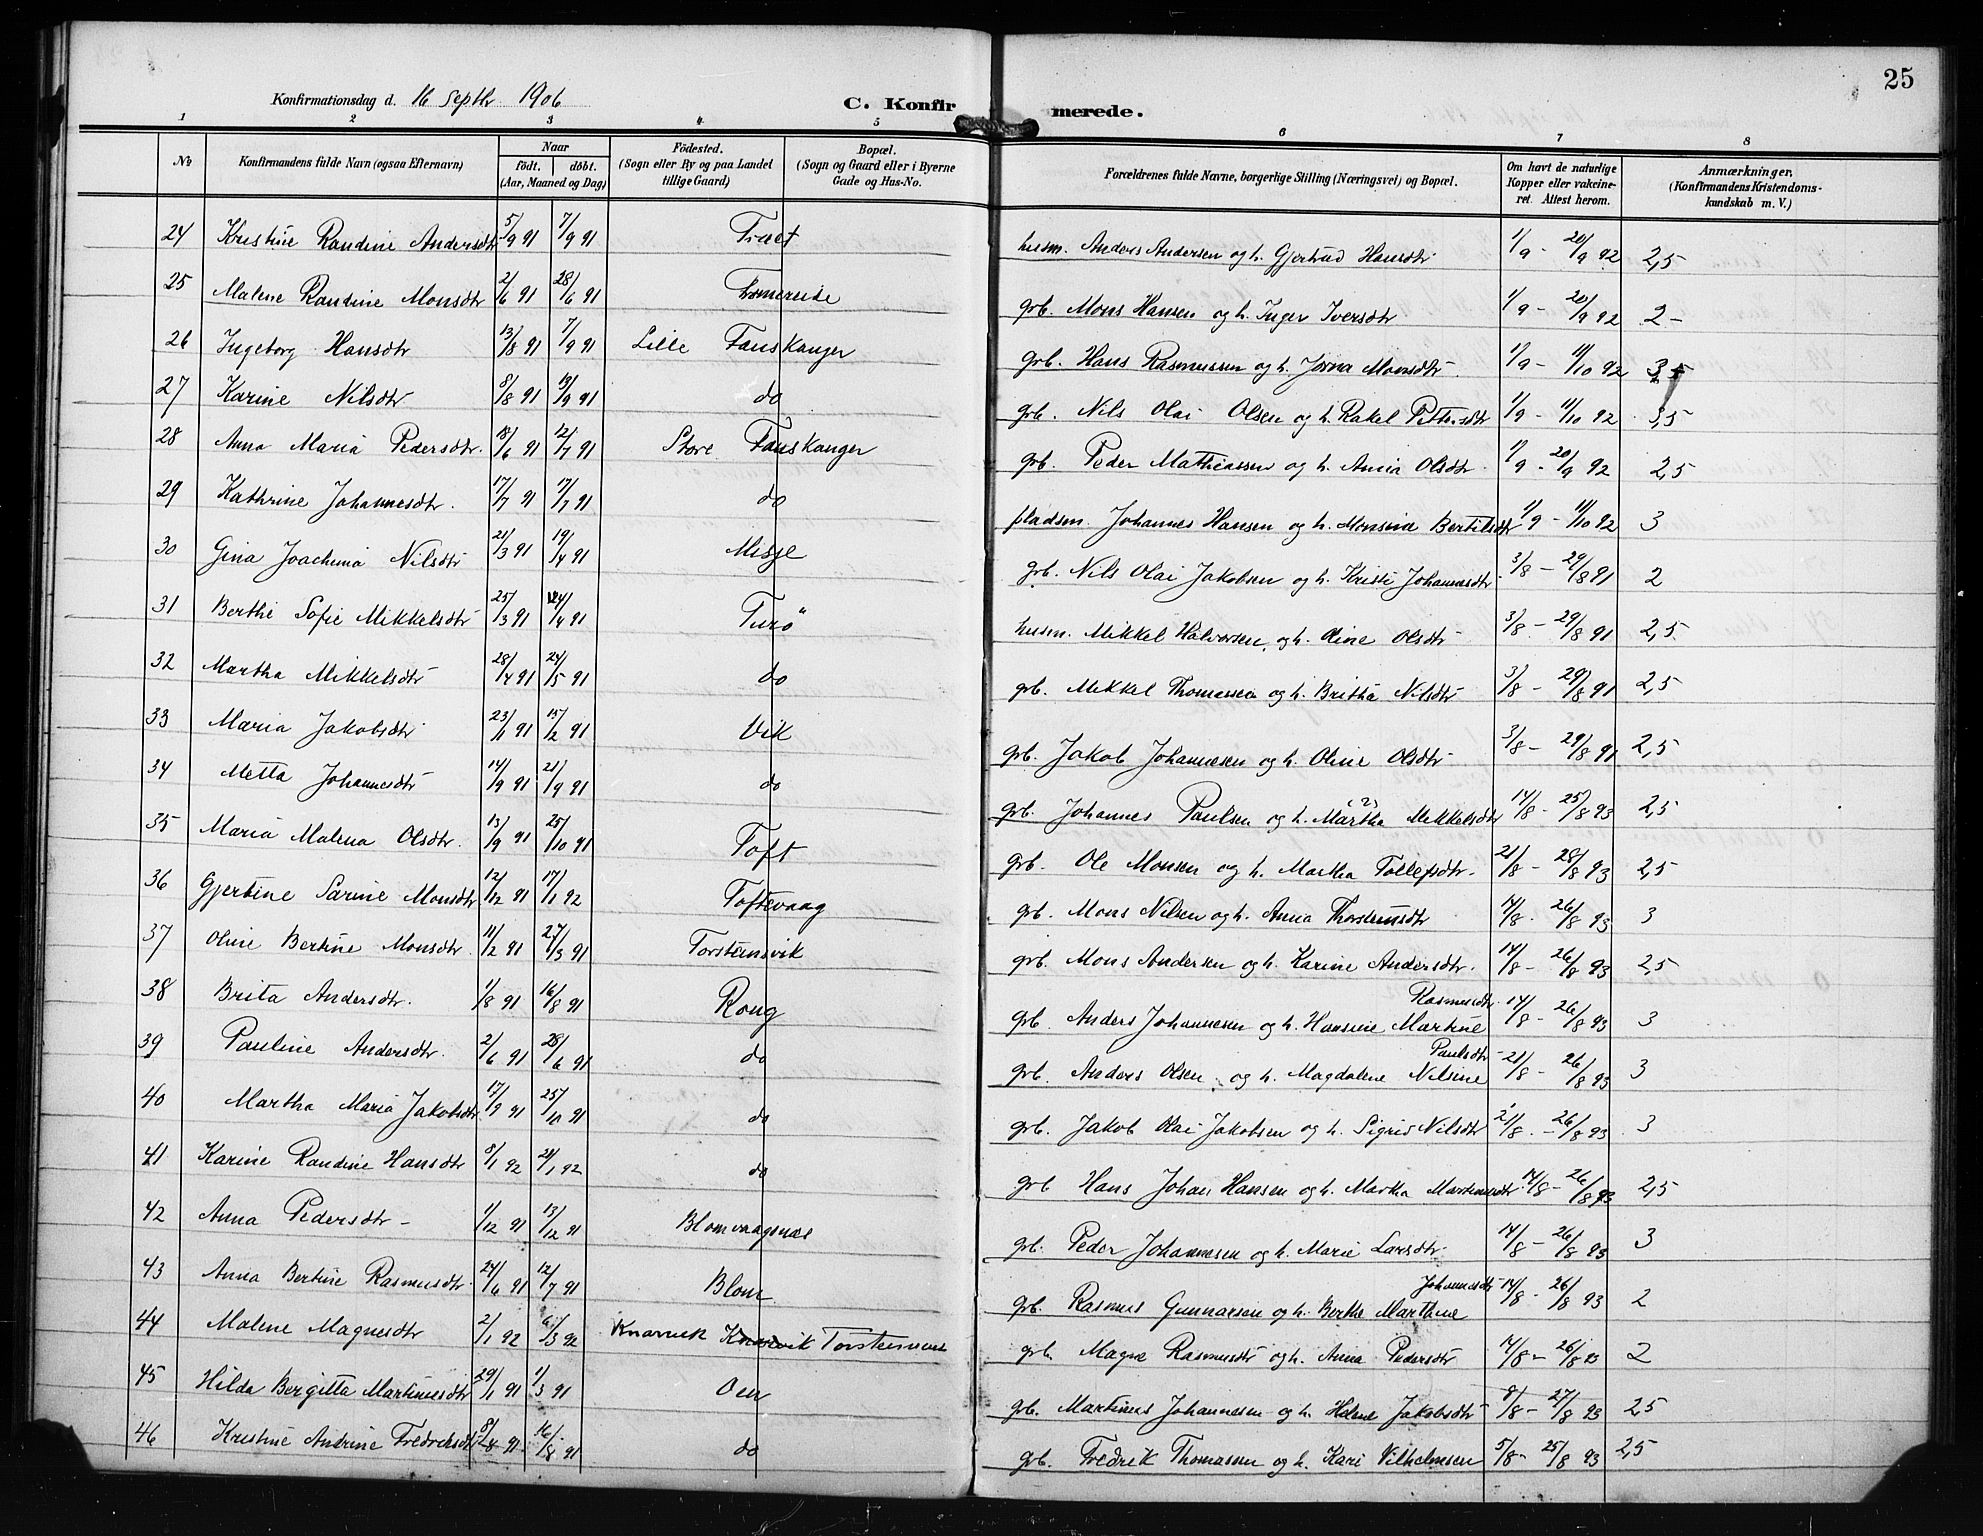 25
Konfirmationsdag d. 16 Septbr 1906 C. Konfirmerede.
1 2 3 4 5 6 7 8
No Konfirmandens fulde Navn (ogsaa Efternavn) Naar født, døbt. (Aar, Maaned og Dag) Födested. (Sogn eller By og paa Landet tillige Gaard) Bopæl. (Sogn og Gaard eller i Byerne Gade og Hus-No. Forældrenes fulde Navne, borgerlige Stilling (Næringsvei) og Bopæl. Om havt de naturlige Kopper eller vakcineret. Attest herom. Anmærkninger, (Konfirmandens Kristendomskundskab m. V.)
24 Kristine Randine Andersdtr 5/9 91 7/9 91 Træet husm. Anders Andersen og h. Gjertrud Hansdtr 1/9 - 20/9 92 2,5
25 Malene Randine Monsdtr 2/6 91 28/6 91 grb. Mons Hansen og h. Inger Iversdtr 1/9 - 20/9 92 2-
26 Ingeborg Hansdtr 13/8 91 7/9 91 Lille Fauskanger grb. Hans Rasmussen og h. Jorna Monsdtr 1/9 - 11/10 92 3,5
27 Karine Nilsdtr 8/8 91 19/9 91 do grb. Nils Olai Olsen og h. Rakel 1/9 - 11/10 92 3,5
28 Anna Maria Pedersdtr. 18/6 91 12/7 91 Store Fauskanger grb. Peder Mathiassen og h. Anna Olsdtr 1/9 - 20/9 92 2,5
29 Kathrine Johannesdtr. 17/7 91 17/7 91 do pladsm. Johannes Hansen og h. Monsine Bertilsdtr 1/9 - 11/10 92 3
30 Gina Joachima Nilsdtr 21/3 91 19/4 91 Misje grb. Nils Olai Jakobsen og h. Kristi Johannesdtr 3/8 - 29/8 91 2
31 Berthe Sofie Mikkelsdtr 25/3 91 24/4 91 Turö husm. Mikkel Halvorsen og h. Oline Olsdtr 3/8 - 29/8 91 2,5
32 Martha Mikkelsdtr 28/4 91 24/5 91 do grb. Mikkel Thomassen og h. Britha Nilsdtr 3/8 - 29/8 91 2,5
33 Maria Jakobsdtr 23/1 91 15/2 91 Vik grb. Jakob Johannesen og h. Oline Olsdtr 3/8 - 29/8 91 2,5
34 Metta Johannesdtr 14/9 91 21/9 91 do grb. Johannes Paulsen og h. (2) Martha Mikkelsdtr 14/8 - 25/8 93 2,5
35 Maria Malena Olsdtr. 13/9 91 25/10 91 Toft grb. Ole Monsen og h. Martha Tollefsdtr. 21/8 - 28/8 93 2,5
36 Gjertine Sarine Monsdtr 12/12 91 17/1 92 Toftevaag grb. Mons Nilsen og h. Anna Thorsteinsdtr 14/8 - 26/8 93 3
37 Oline Bertine Monsdtr. 11/2 91 27/3 91 Torsteinsvik grb. Mons Andersen og h. Karine Andersdtr. 14/8 - 26/8 93 2,5
38 Brita Andersdtr. 1/8 91 16/8 91 Rong grb. Anders Johannesen og h. Hansine Martine Rasmusdtr. 14/8 - 26/8 93 3
39 Pauline Andersdtr. 2/6 91 28/6 91 do grb. Anders Olsen og h. Magdalene Nilsine Paulsdtr 21/8 - 26/8 93 3
40 Martha Maria Jakobsdtr 17/9 91 25/10 91 do grb. Jakob Olai Jakobsen og h. Sigrid Nilsdtr 21/8 - 26/8 93 3
41 Karine Randine Hansdtr 8/1 92 24/1 92 do grb Hans Johan Hansen og h. Martha Martinusdtr 14/8 - 26/8 93 2,5
42 Anna Pedersdtr - 1/12 91 13/12 91 Blomvaagsnæs grb. Peder Johannesen og h. Marie Larsdtr. 14/8 - 26/8 93 3
43 Anna Bertine Rasmusdtr. 24/6 91 12/7 91 Blom grb. Rasmus Gunnarsen og h. Berthe Marthine Johannesdtr 14/8 - 26/8 93 2
44 Malene Magnesdtr 2/1 92 6/3 92 Knarvik Knarvik grb. Magne Rasmusdtr og h. Anna Pedersdtr 14/8 - 26/8 93 2
45 Hilda Bergitta Martinusdtr 29/1 91 1/3 91 Oen grb. Martinus Johannesen og h. Helene Jakobsdtr 8/8 - 27/8 93 2,5
46 Kristine Andrine Fredriksdtr 8/8 91 16/8 91 do grb. Fredrik Thomassen og h. Kari Vilhelmsen 5/8 - 25/8 93 2,5